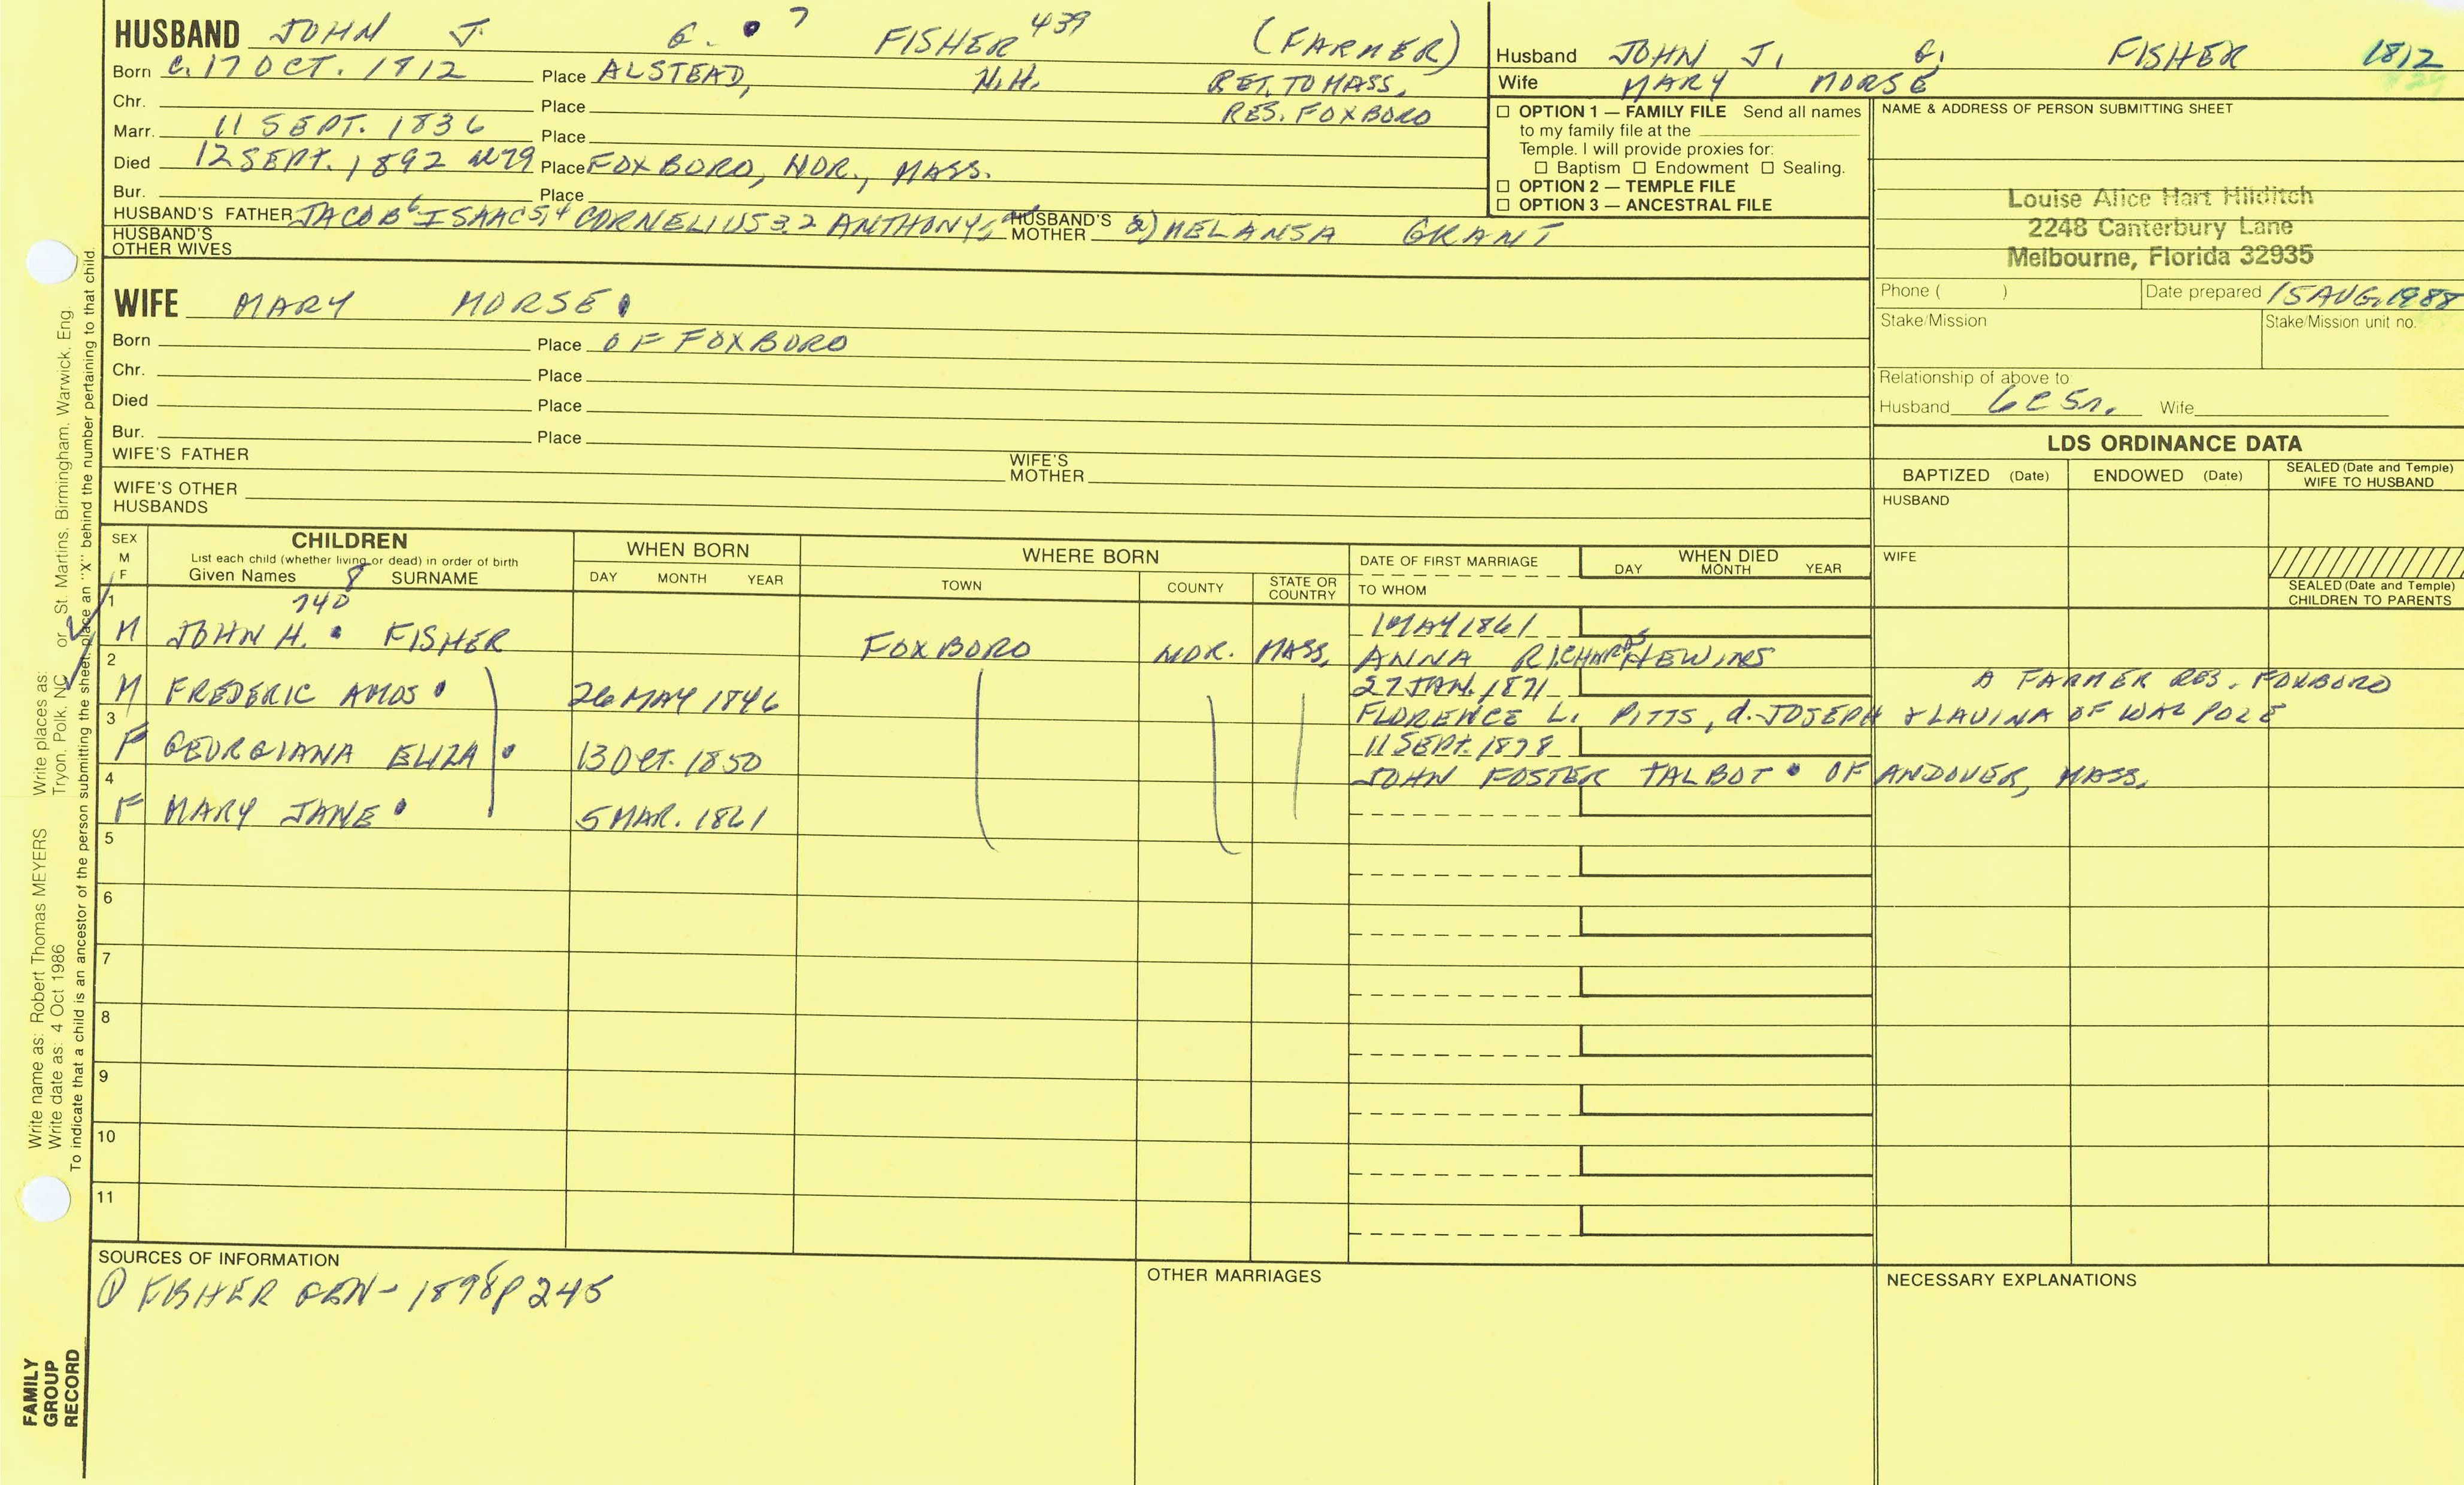 HUSBAND JOHN J. G. 7 FISHER 439 (FARMER)
Born C. 17 OCT. 1812 Place ALSTEAD, N.H. RET. TO MASS.
Chr. Place RES. FOXBORO
Marr. 11 SEPT. 1836 Place
Died 12 SEPT. 1892 Place FOXBORO, NOR., MASS.
Bur. Place
HUSBAND'S FATHER JACOB 6 ISAAC 5,4 CORNELIUS 3,2 ANTHONY HUSBAND'S MOTHER 2) MELANSA GRANT
HUSBAND'S OTHER WIVES
Husband JOHN J. G. FISHER 1812
Wife MARY MORSE
☐ OPTION 1 — FAMILY FILE Send all names
to my family file at the
Temple. I will provide proxies for:
☐ Baptism ☐ Endowment ☐ Sealing.
☐ OPTION 2 — TEMPLE FILE
☐ OPTION 3 — ANCESTRAL FILE
NAME & ADDRESS OF PERSON SUBMITTING SHEET
Louise Alice Hart Hilditch
2248 Canterbury Lane
Melbourne, Florida 32935
Phone ( ) Date prepared 15 AUG. 1988
Stake/Mission Stake/Mission unit no.
Relationship of above to
Husband 6C5R. Wife
WIFE MARY MORSE
Born Place OF FOXBORO
Chr. Place
Died Place
Bur. Place
WIFE'S FATHER WIFE'S MOTHER
WIFE'S OTHER HUSBANDS
LDS ORDINANCE DATA
BAPTIZED (Date) ENDOWED (Date) SEALED (Date and Temple) WIFE TO HUSBAND
HUSBAND
WIFE
SEALED (Date and Temple) CHILDREN TO PARENTS
SEX M F
CHILDREN
List each child (whether living or dead) in order of birth
Given Names 8 SURNAME
WHEN BORN
DAY MONTH YEAR
WHERE BORN
TOWN COUNTY STATE OR COUNTRY
DATE OF FIRST MARRIAGE
TO WHOM
WHEN DIED
DAY MONTH YEAR
1 740 1 MAY 1861
M JOHN H. FISHER FOXBORO NOR. MASS. ANNA RICHARDS HEWINS
2 27 JAN. 1871 A FARMER RES. FOXBORO
M FREDERIC AMOS 26 MAY 1846 FLORENCE L. PITTS, d. JOSEPH & LAVINA OF WALPOLE
3 11 SEPT. 1878
F GEORGIANA ELIZA 13 OCT. 1850 JOHN FOSTER TALBOT OF ANDOVER, MASS.
4
F MARY JANE 5 MAR. 1861
5
6
7
8
9
10
11
SOURCES OF INFORMATION
① FISHER GEN - 1898 P 245
OTHER MARRIAGES
NECESSARY EXPLANATIONS
Write name as: Robert Thomas MEYERS Write places as: or St. Martins, Birmingham, Warwick, Eng.
Write date as: 4 Oct 1986 Tryon, Polk, NC
To indicate that a child is an ancestor of the person submitting the sheet, place an "X" behind the number pertaining to that child.
FAMILY
GROUP
RECORD